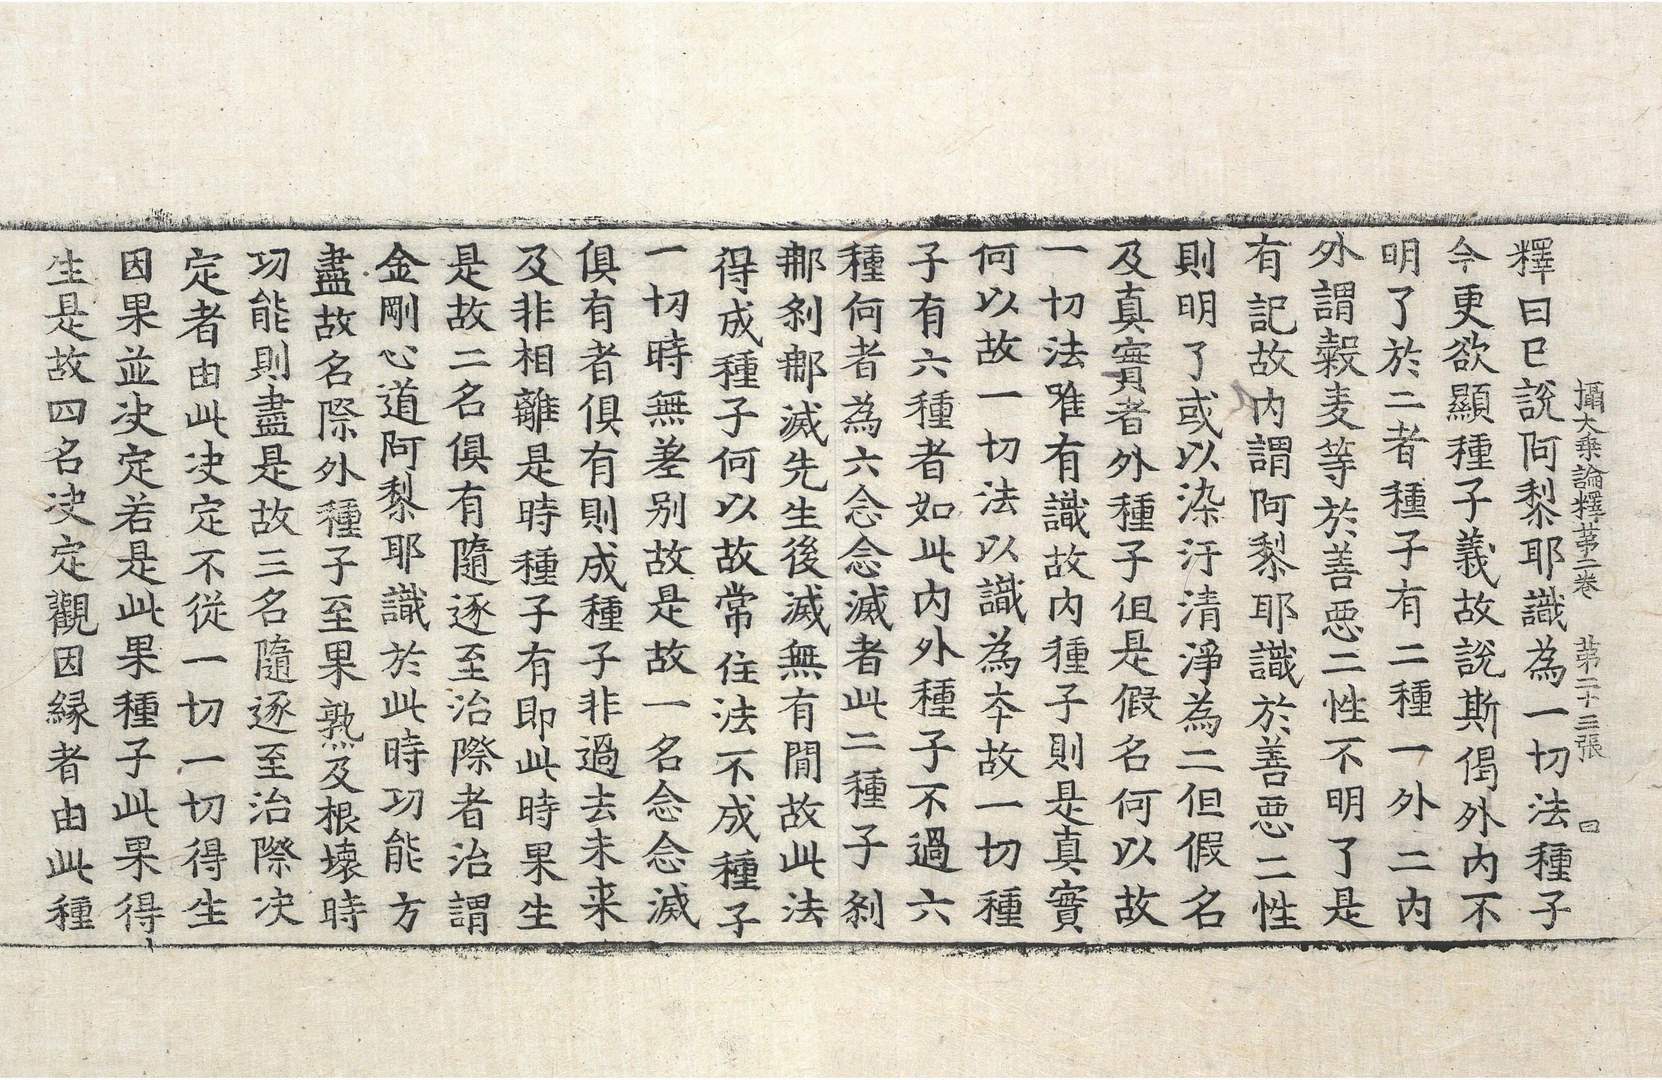 攝大乗論釋苐二卷　苐二十三張　曰
釋曰已說阿黎耶識為一切法種子
今更欲顯種子義故說斯偈外内不
明了於二者種子有二種一外二内
外謂穀麦等於善惡二性不明了是
有記故内謂阿黎耶識於善惡二性
則明了或以染汙清淨為二但假名
及真實者外種子但是假名何以故
一切法唯有識故内種子則是真實
何以故一切法以識為夲故一切種
子有六種者如此内外種子不過六
種何者為六念念滅者此二種子刹
那刹那滅先生後滅無有間故此法
得成種子何以故常住法不成種子
一切時無差别故是故一名念念滅
俱有者俱有則成種子非過去未来
及非相離是時種子有即此時果生
是故二名俱有隨逐至治際者治謂
金剛心道阿黎耶識於此時功能方
盡故名際外種子至果熟及根壞時
功能則盡是故三名隨逐至治際决
定者由此决定不從一切一切得生
因果並决定若是此果種子此果得
生是故四名决定觀因縁者由此種